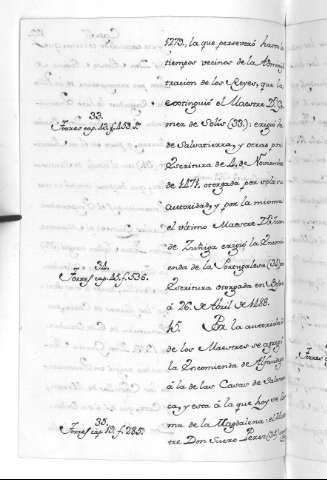 1273, la que perseveró hasta
tiempos vecinos de la Admnis
tracion de los Reyes, que la
extinguió el Maestre D. Go
mez de Solís (33.): erigió la
de Salvatierra, y otras por
Escritura de 4. de Noviembre
de 1471, otorgada por sola su
autoridad, y por la misma
el ultimo Maestre D. Juan
de Zuñiga erigió la Encom
ienda de la Portugalesa (34) por
Escritura otorgada en
á 26. de Abril de 1488.
45. Por la autoridad
de los Maestres se agregó
la Encomienda de
á la de las Casas de Salaman
ca, y esta á la que hoy se lla
ma de la Magdalena: el Maes
tre Don Suero Perez (35)
33.
Torres cap. 18. f. 453.
34.
Torres cap. 41. f. 536.
35.
Torres cap. 19. f. 285.
Torres